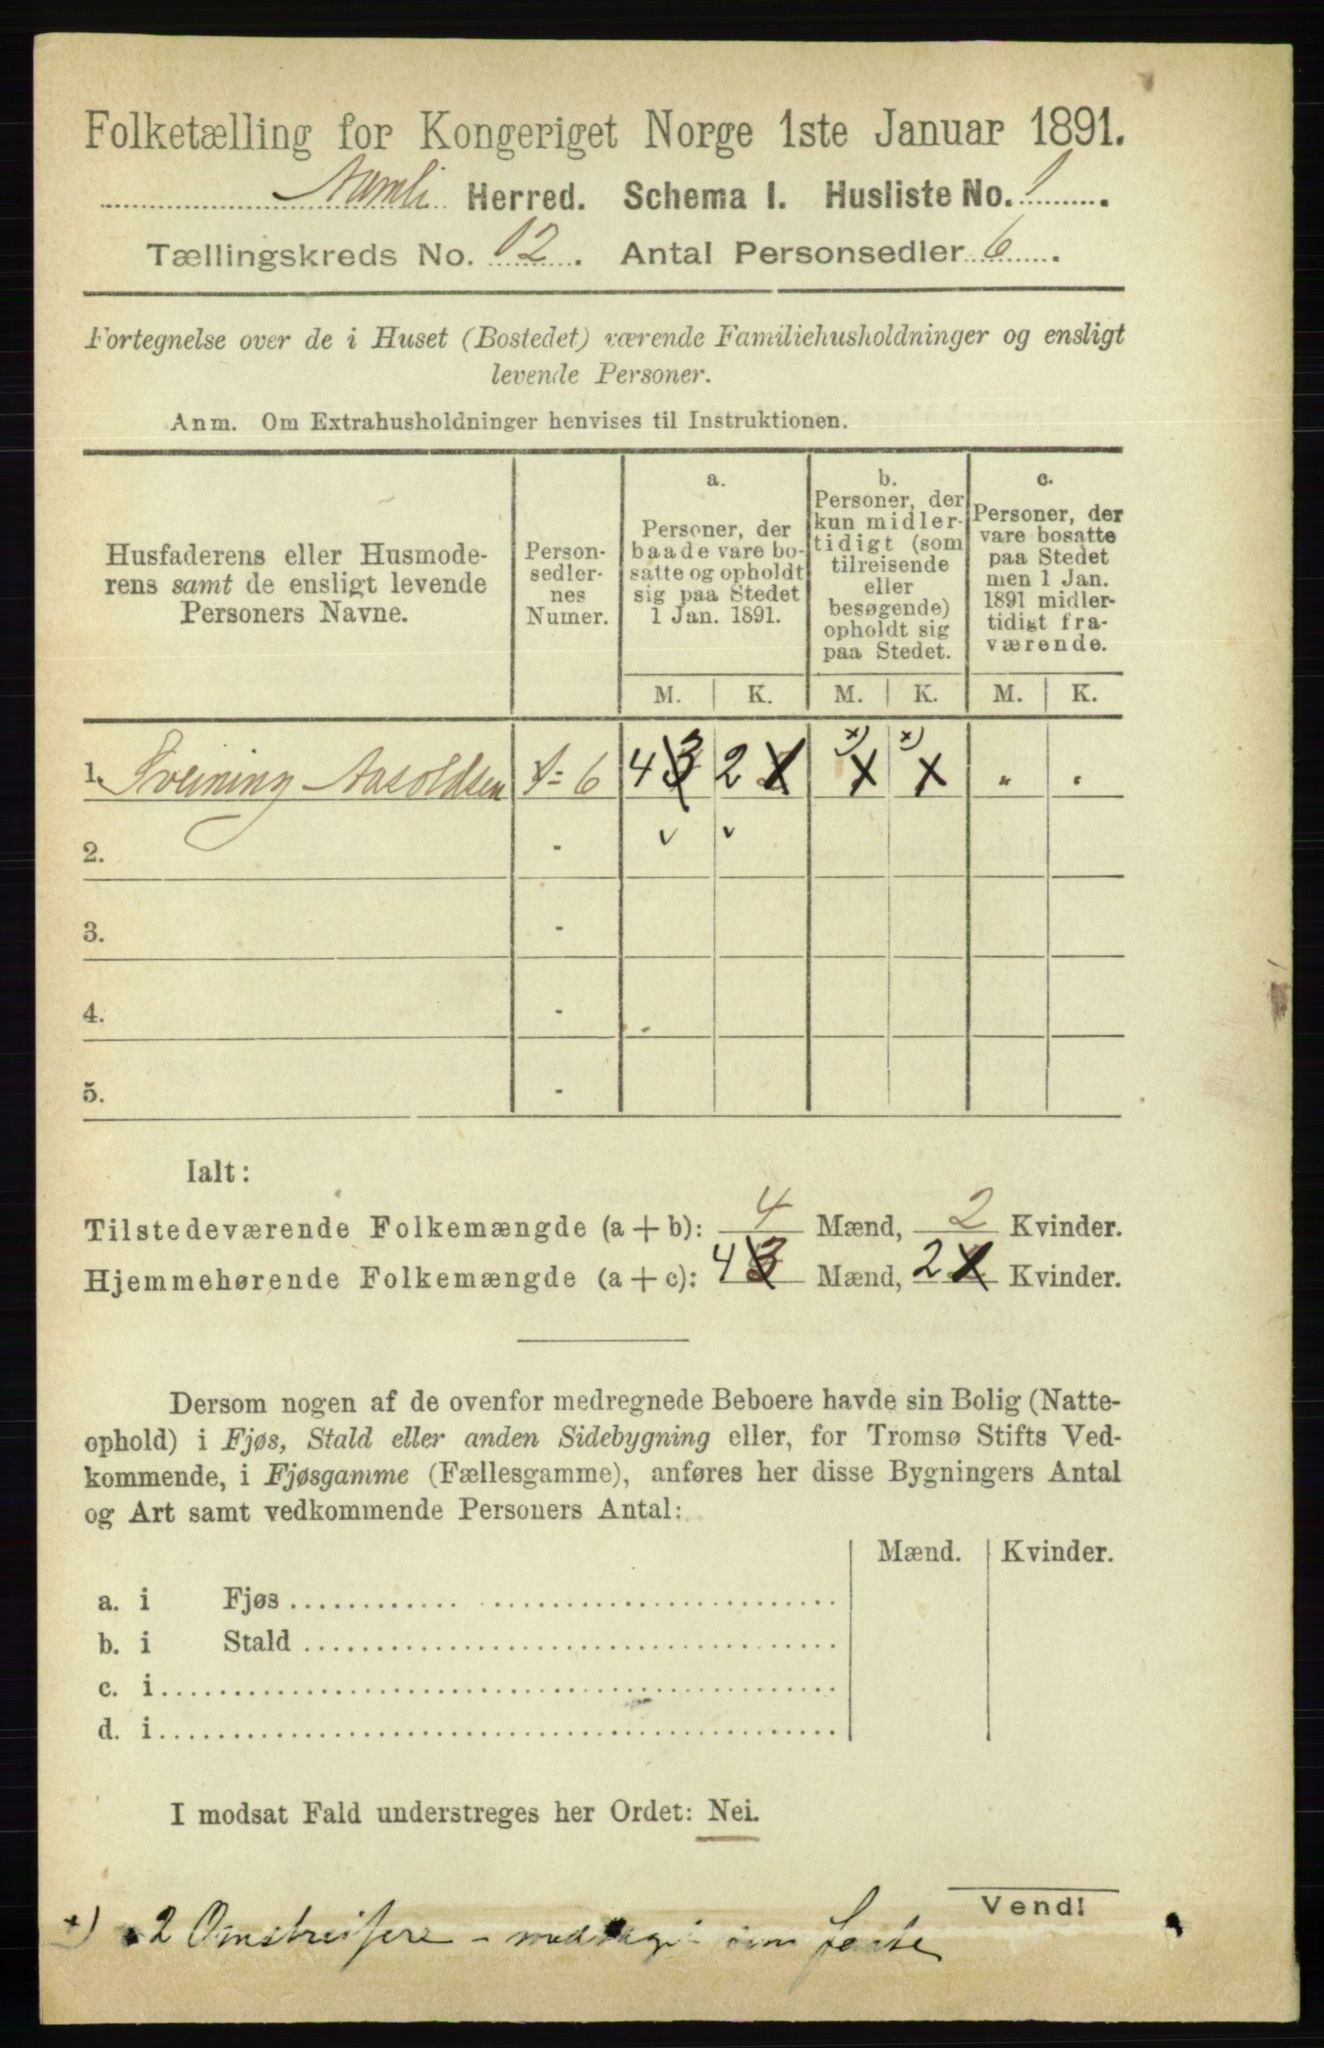 Folketælling for Kongeriget Norge 1ste Januar 1891.
Aamli Herred. Schema I. Husliste No. 1.
Tællingskreds No. 12. Antal Personsedler 6.
Fortegnelse over de i Huset (Bostedet) værende Familiehusholdninger og ensligt
levende Personer.
Anm. Om Extrahusholdninger henvises til Instruktionen.
Husfaderens eller Husmode-
rens samt de ensligt levende
Personers Navne.
Person-
sedler-
nes
Numer.
a.
Personer, der
baade vare bo-
satte og opholdt
sig paa Stedet
1 Jan. 1891.
b.
Personer, der
kun midler-
tidigt (som
tilreisende
eller
besøgende)
opholdt sig
paa Stedet.
c.
Personer, der
vare bosatte
paa Stedet
men 1 Jan.
1891 midler-
tidigt fra-
værende.
M. K. M. K. M. K.
1. Sveining Aasoldsen 1 - 6 4 3 2 1 x) x x) x " "
2. - v v
3. -
4. -
5. -
Ialt:
Tilstedeværende Folkemængde (a + b): 4 Mænd, 2 Kvinder.
Hjemmehørende Folkemængde (a + c): 4 3 Mænd, 2 1 Kvinder.
Dersom nogen af de ovenfor medregnede Beboere havde sin Bolig (Natte-
ophold) i Fjøs, Stald eller anden Sidebygning eller, for Tromsø Stifts Ved-
kommende, i Fjøsgamme (Fællesgamme), anføres her disse Bygningers Antal
og Art samt vedkommende Personers Antal:
Mænd. Kvinder.
a. i Fjøs
b. i Stald
c. i
d. i
I modsat Fald understreges her Ordet: Nei.
Vend!
x) 2 Omstreifere - som faste